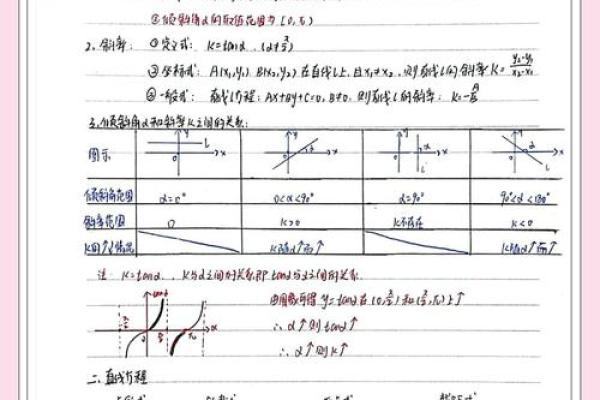 ②倾斜角α的取值范围为[0,π)
2.斜率: ①定义式: k=tanα. (α≠π/2)
②坐标式: A(x₁,y₁) B(x₂,y₂)在直线l上,且x₁≠x₂,则直线l的斜率k=(y₂-y₁)/(x₂-x₁)
③一般式: 直线l方程:Ax+By+C=0,B≠0,则直线l的斜率:k=-A/B
3.倾斜角α和斜率k之间的关系:
图示 y x 0 l y x 0 α y x 0 α l y x 0 α l
倾斜角范围 α=0° 0<α<90° α=90° 90°<α<180°
斜率范围 0 k>0 k不存在 k<0
k的↑↓情况 k随α↑而↑ k随α↑而↑
注: k=tanα. k与α之间的关系即tanα与α之间的关系
由图象可得 y=tanα在(0,π/2)和(π/2,π)上↑
tanα α
∴α↑则tanα↑
∴α↑则k↑
二、直线方程